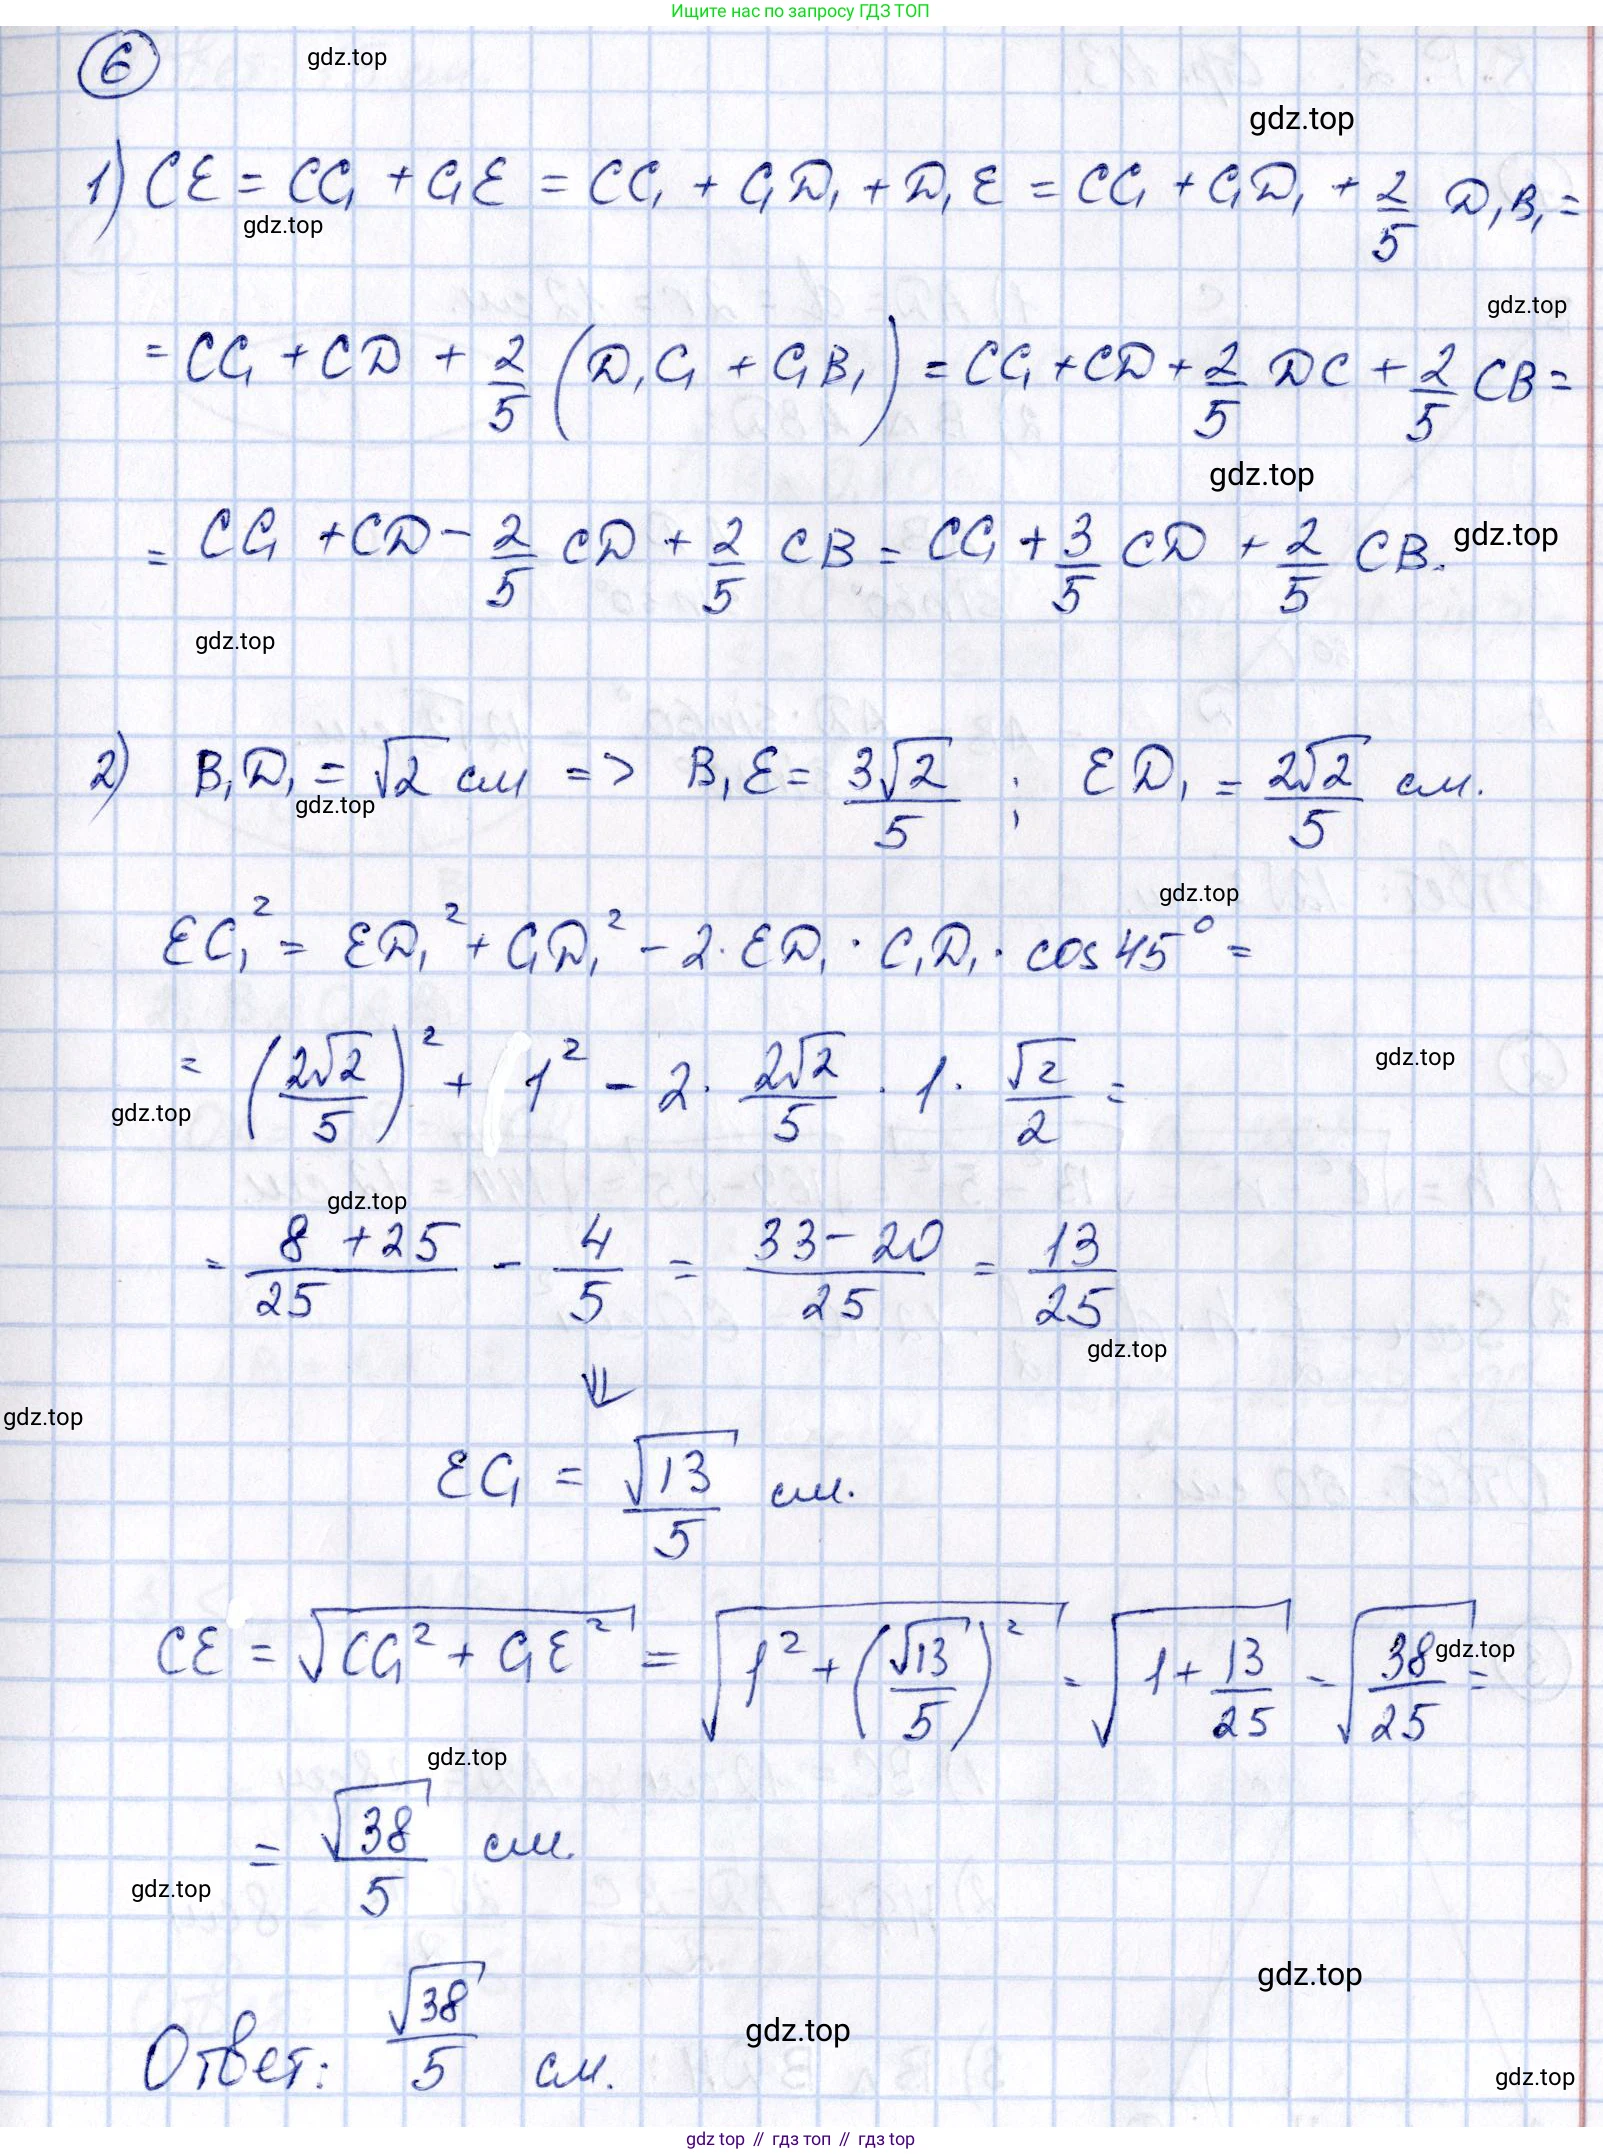 Ищите нас по запросу ГДЗ ТОП
6
gdz.top
gdz.top
1) CE = CC₁ + C₁E = CC₁ + C₁D₁ + D₁E = CC₁ + C₁D₁ + 2/5 D₁B₁ =
gdz.top
gdz.top
= CC₁ + CD + 2/5 (D₁C₁ + C₁B₁) = CC₁ + CD + 2/5 DC + 2/5 CB =
gdz.top
= CC₁ + CD − 2/5 CD + 2/5 CB = CC₁ + 3/5 CD + 2/5 CB.
gdz.top
gdz.top
2) B₁D₁ = √2 см => B₁E = 3√2/5 ; ED₁ = 2√2/5 см.
gdz.top
gdz.top
EC₁² = ED₁² + C₁D₁² − 2 · ED₁ · C₁D₁ · cos 45° =
gdz.top
= (2√2/5)² + 1² − 2 · 2√2/5 · 1 · √2/2 =
gdz.top
gdz.top
= 8 + 25/25 − 4/5 = 33 − 20/25 = 13/25
gdz.top
⇓
gdz.top
EC₁ = √13/5 см.
CE = √(CC₁² + C₁E²) = √(1² + (√13/5)²) = √(1 + 13/25) = √(38/25) =
gdz.top
gdz.top
= √38/5 см.
gdz.top
gdz.top
Ответ: √38/5 см.
gdz.top
gdz.top
gdz top // гдз топ // gdz top